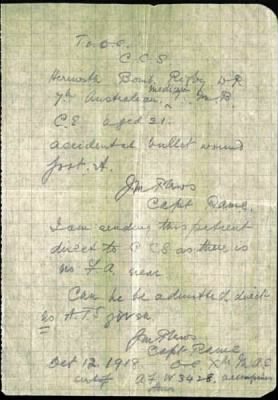 To O.C.
C.C.S
Bomb. Rigby W.R.
7th Australian medium T.M.B.
C.E aged 21.
accidental bullet wound
foot.
Capt RAMC.
I am sending this patient
direct to C C S as there is
no F A near
Can he be admitted direct
no A.T.S given
Capt RAMC
Oct 12. 1918 O.C.
A.F. W 3428, accompanies